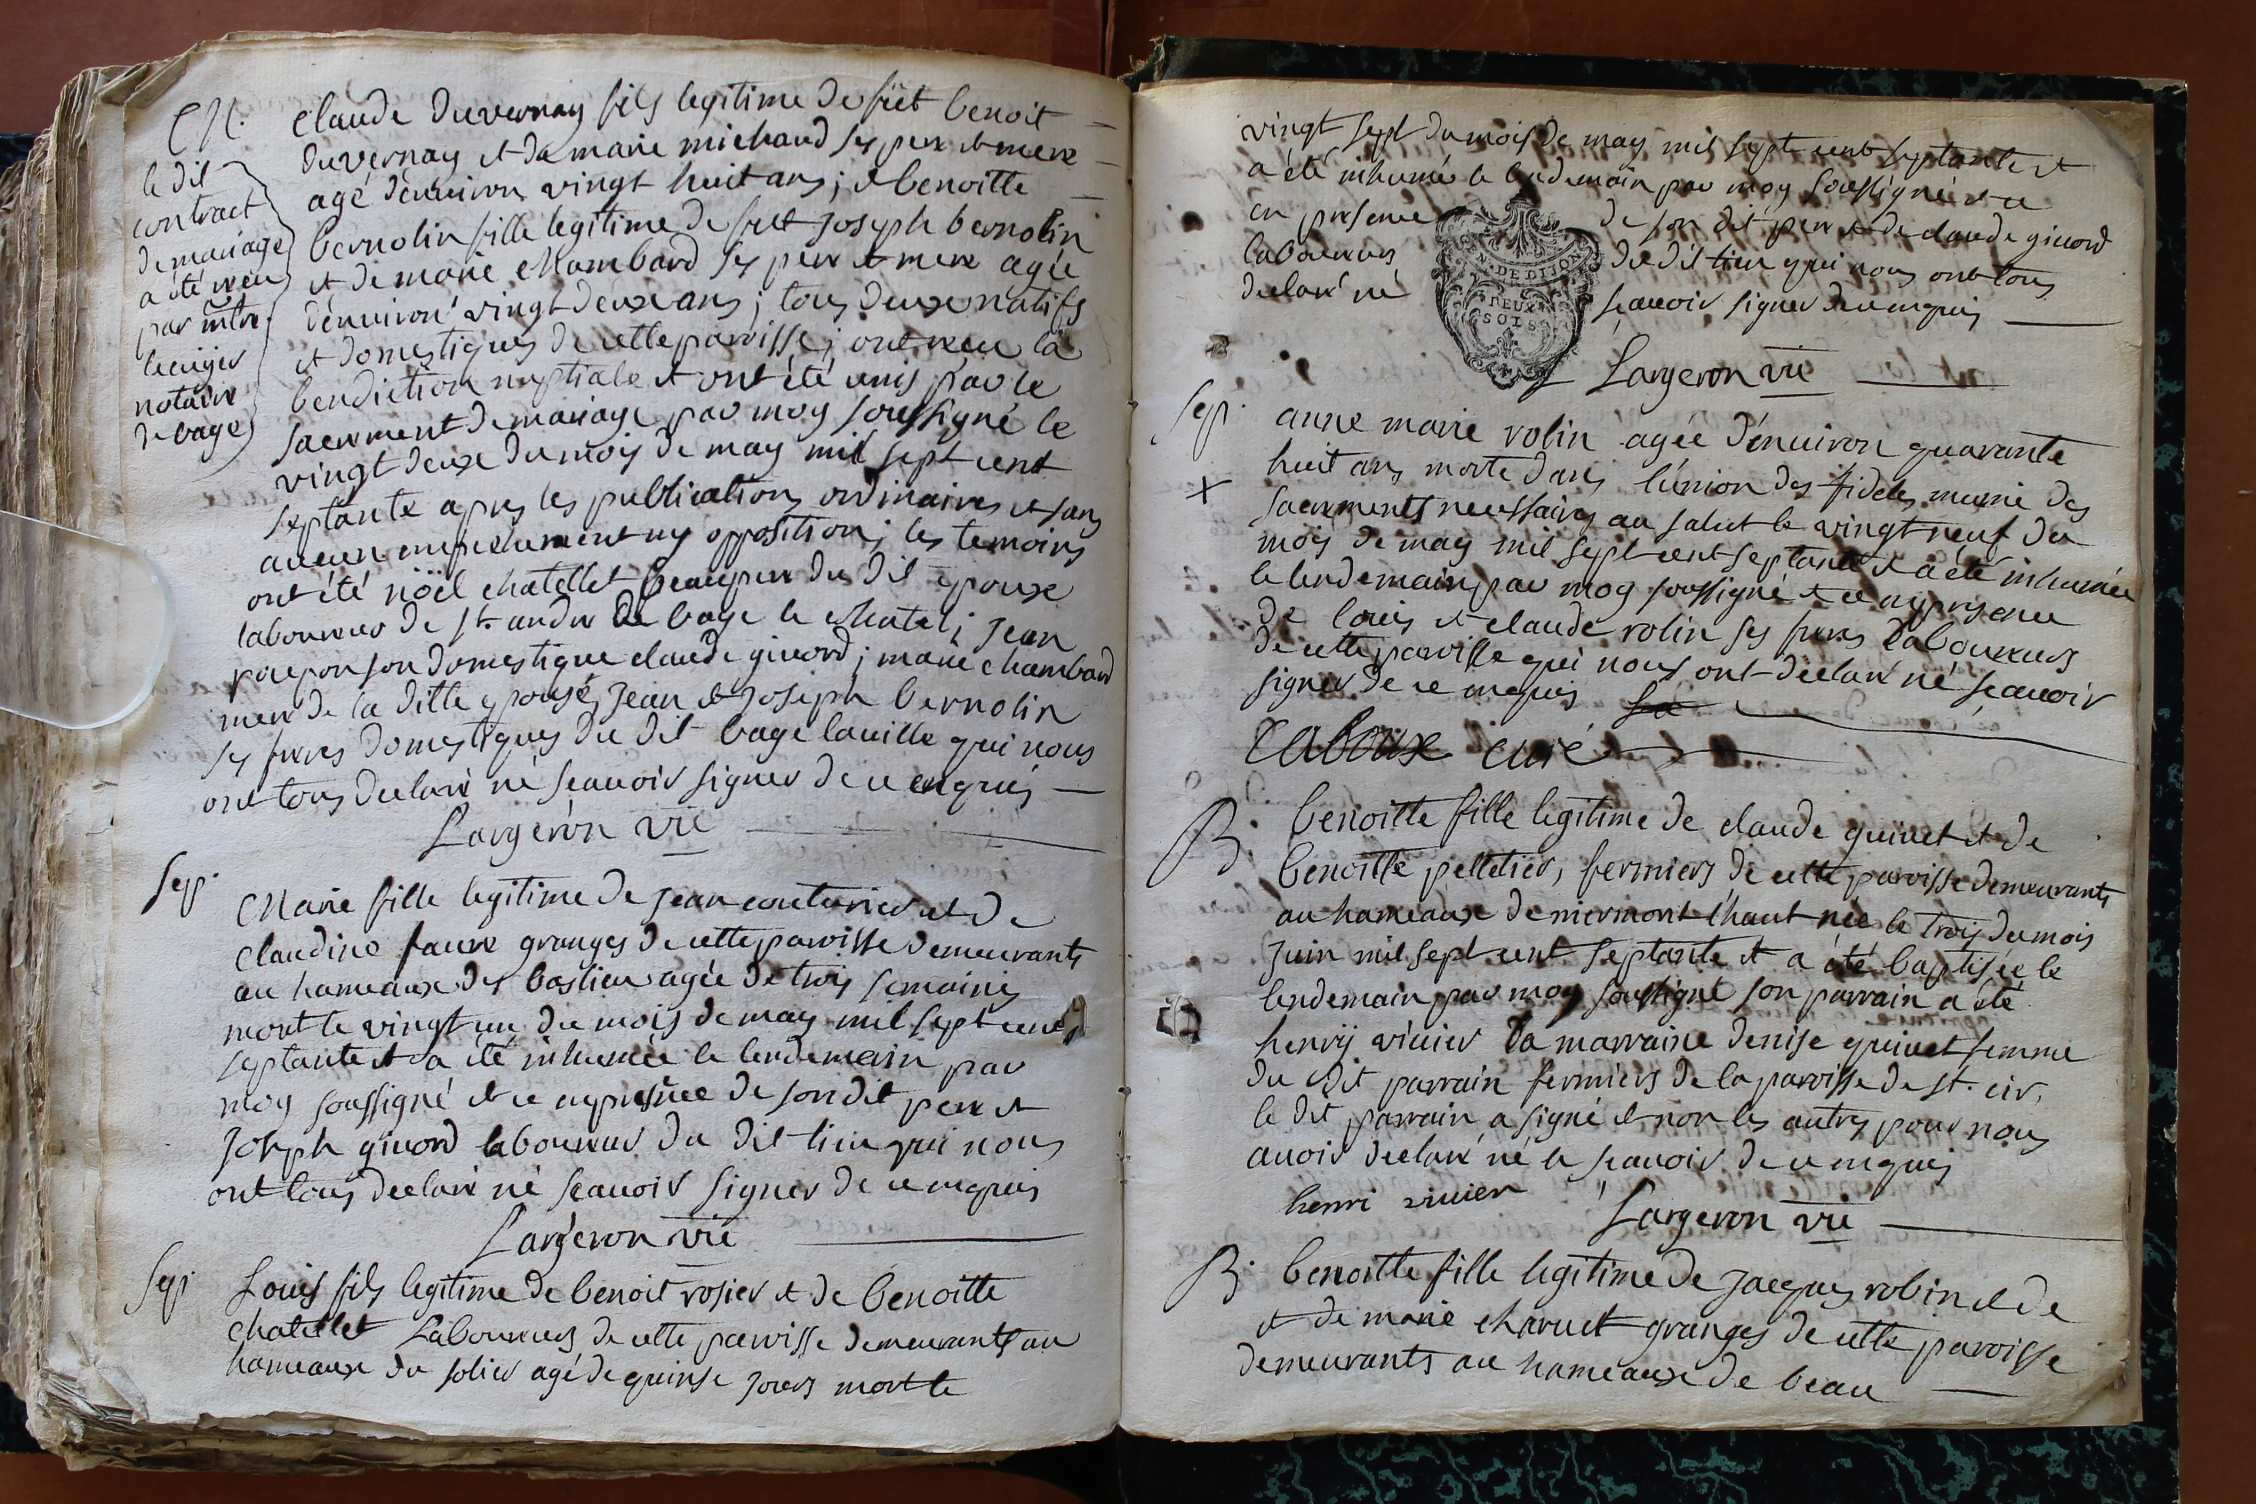 M.
le dit
contract
de mariage
a été receu
par mtre
notaire
de bage
Claude Duvernay fils legitime de fût benoit
Duvernay et de marie michaud ses pere et mere
agé d'enuiron vingt huit ans; et benoitte
bernolin fille legitime de fut Joseph bernolin
et de marie Chambard ses pere et mere agée
d'enuiron vingt deux ans; tous deux natifs
et domestiques de cette paroisse; ont receu la
benediction nuptiale et ont été unis par le
sacrement de mariage par moy soussigné le
vingt deux du mois de may mil sept cent
septante apres les publications ordinaires et sans
aucun empechement ny opposition; les temoins
ont été nöel chatellet beaupere du dit epoux
laboureur de st. andré de bage le Chatel; Jean
poupon son domestique claude giuord; marie chambard
mere de la ditte epouse, Jean et Joseph bernolin
ses freres domestiques du dit bage lauille qui nous
ont tous declaré né scauoir signer de ce enquis
Largeron vic
Sep.
Marie fille legitime de Jean couturier et de
Claudine faure granges de cette paroisse demeurants
au hameaux des bastieu agée de trois semaines
mort le vingt un du mois de may mil sept cent
septante et a été inhumée le lendemain par
moy soussigné et ce en presence de son dit pere et
Joseph giuord laboureur du dit lieu qui nous
ont tous declaré né scauoir signer de ce enquis
Largeron vic
Sep.
Louis fils legitime de benoit rosier et de benoitte
chatellet Laboureurs de cette paroisse demeurants au
hameaux du solier agé de quinse jours mort le
vingt sept du mois de may mil sept cent septante et
a été inhumé le lendemain par moy soussigné et ce
en presence de son dit pere et de claude giuord
laboureurs du dit lieu qui nous ont tous
declaré né scauoir signer de ce enquis
N. DE DIJON
DEUX
SOLS
Largeron vic
Sep.
+
anne marie rolin agée d'enuiron quarante
huit ans morte dans l'union des fideles munie des
sacrements necessaires au salut le vingt neuf du
mois de may mil sept cent septante et a été inhumée
le lendemain par moy soussigné et ce en presence
de louis et claude rolin ses freres Laboureurs
de cette paroisse qui nous ont declaré né scauoir
signer de ce enquis
curé
B.
benoitte fille legitime de claude guiuet et de
benoitte pelletier, fermiers de cette paroisse demeurants
au hameaux de miermont l'haut née le trois du mois
Juin mil sept cent septante et a été baptisée le
lendemain par moy soussigné son parrain a été
henrÿ viuier la marraine denise guiuet femme
du dit parrain fermiers de la paroisse de st. cir,
le dit parrain a signé et non les autres pour nous
auoir declaré né le scauoir de ce enquis
henri viuier
Largeron vic
B.
benoitte fille legitime de Jacques robin et de
et de marie charuet granges de cette paroisse
demeurants au hameaux de beau